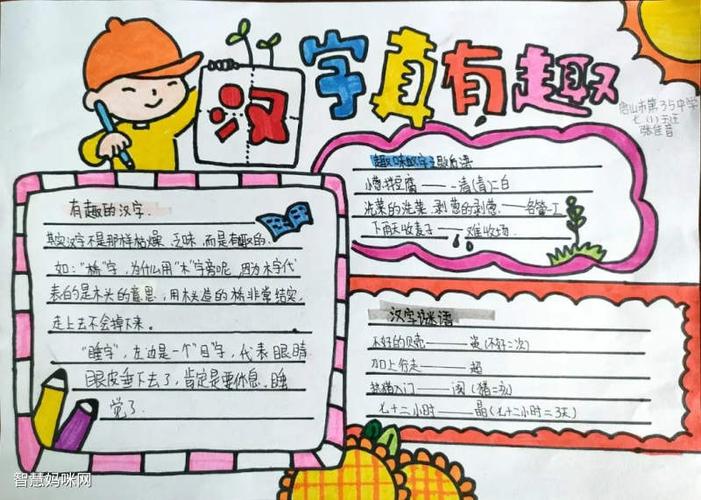 汉字真有趣
唐山市第35中学
七(1)
张佳音
有趣的汉字.
其实汉字不是那样枯燥、乏味,而是有趣的.
如:"桥"字,为什么用"木"字旁呢,因为木字代
表的是木头的意思,用木头造的桥非常结实,
走上去不会掉下来。
"睡字",左边是一个"目"字,代表眼睛
眼皮垂下去了,肯定是要休息、睡
觉了.
趣味汉字歇后语
小葱拌豆腐——一清(青)二白
洗菜的洗菜,剥葱的剥葱——各管一工
下雨天收麦子——难收场.
汉字谜语
不好的贝壳——资(不好=次)
加上行走——超
猪入门——阂(猪=亥)
七十二小时——晶(七十二小时=3天)
智慧妈咪网